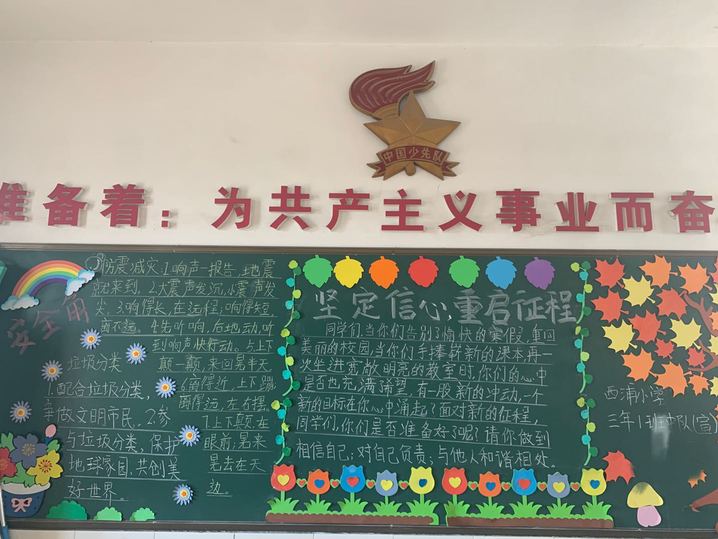 中国少先队
准备着：为共产主义事业而奋
安全用
防震减灾1.响声一报告,地震
就来到.2.大震声发沉,小震声发
尖.3.响得长,在远程;响得短
离不远.4.先听响,后地动,听
到响声快行动.5.上下
颠一颠,来回晃半天
6.离得近,上下蹦
离得远,左右摆.
7.上下颠在
眼前,晃来
晃去在天
边.
垃圾分类
1.配合垃圾分类,
争做文明市民.2.参
与垃圾分类,保护
地球家园,共创美
好世界.
坚定信心,重启征程
同学们,当你们告别了愉快的寒假,重回
美丽的校园,当你们手捧崭新的课本再一
次坐进宽敞明亮的教室时,你们的心中
是否也充满希望,有一股新的冲动,一个
新的目标在你心中涌起?面对新的征程,
同学们,你们是否准备好了呢?请你做到
相信自己;对自己负责;与他人和谐相处.
西浦小学
三年1班中队(宣)